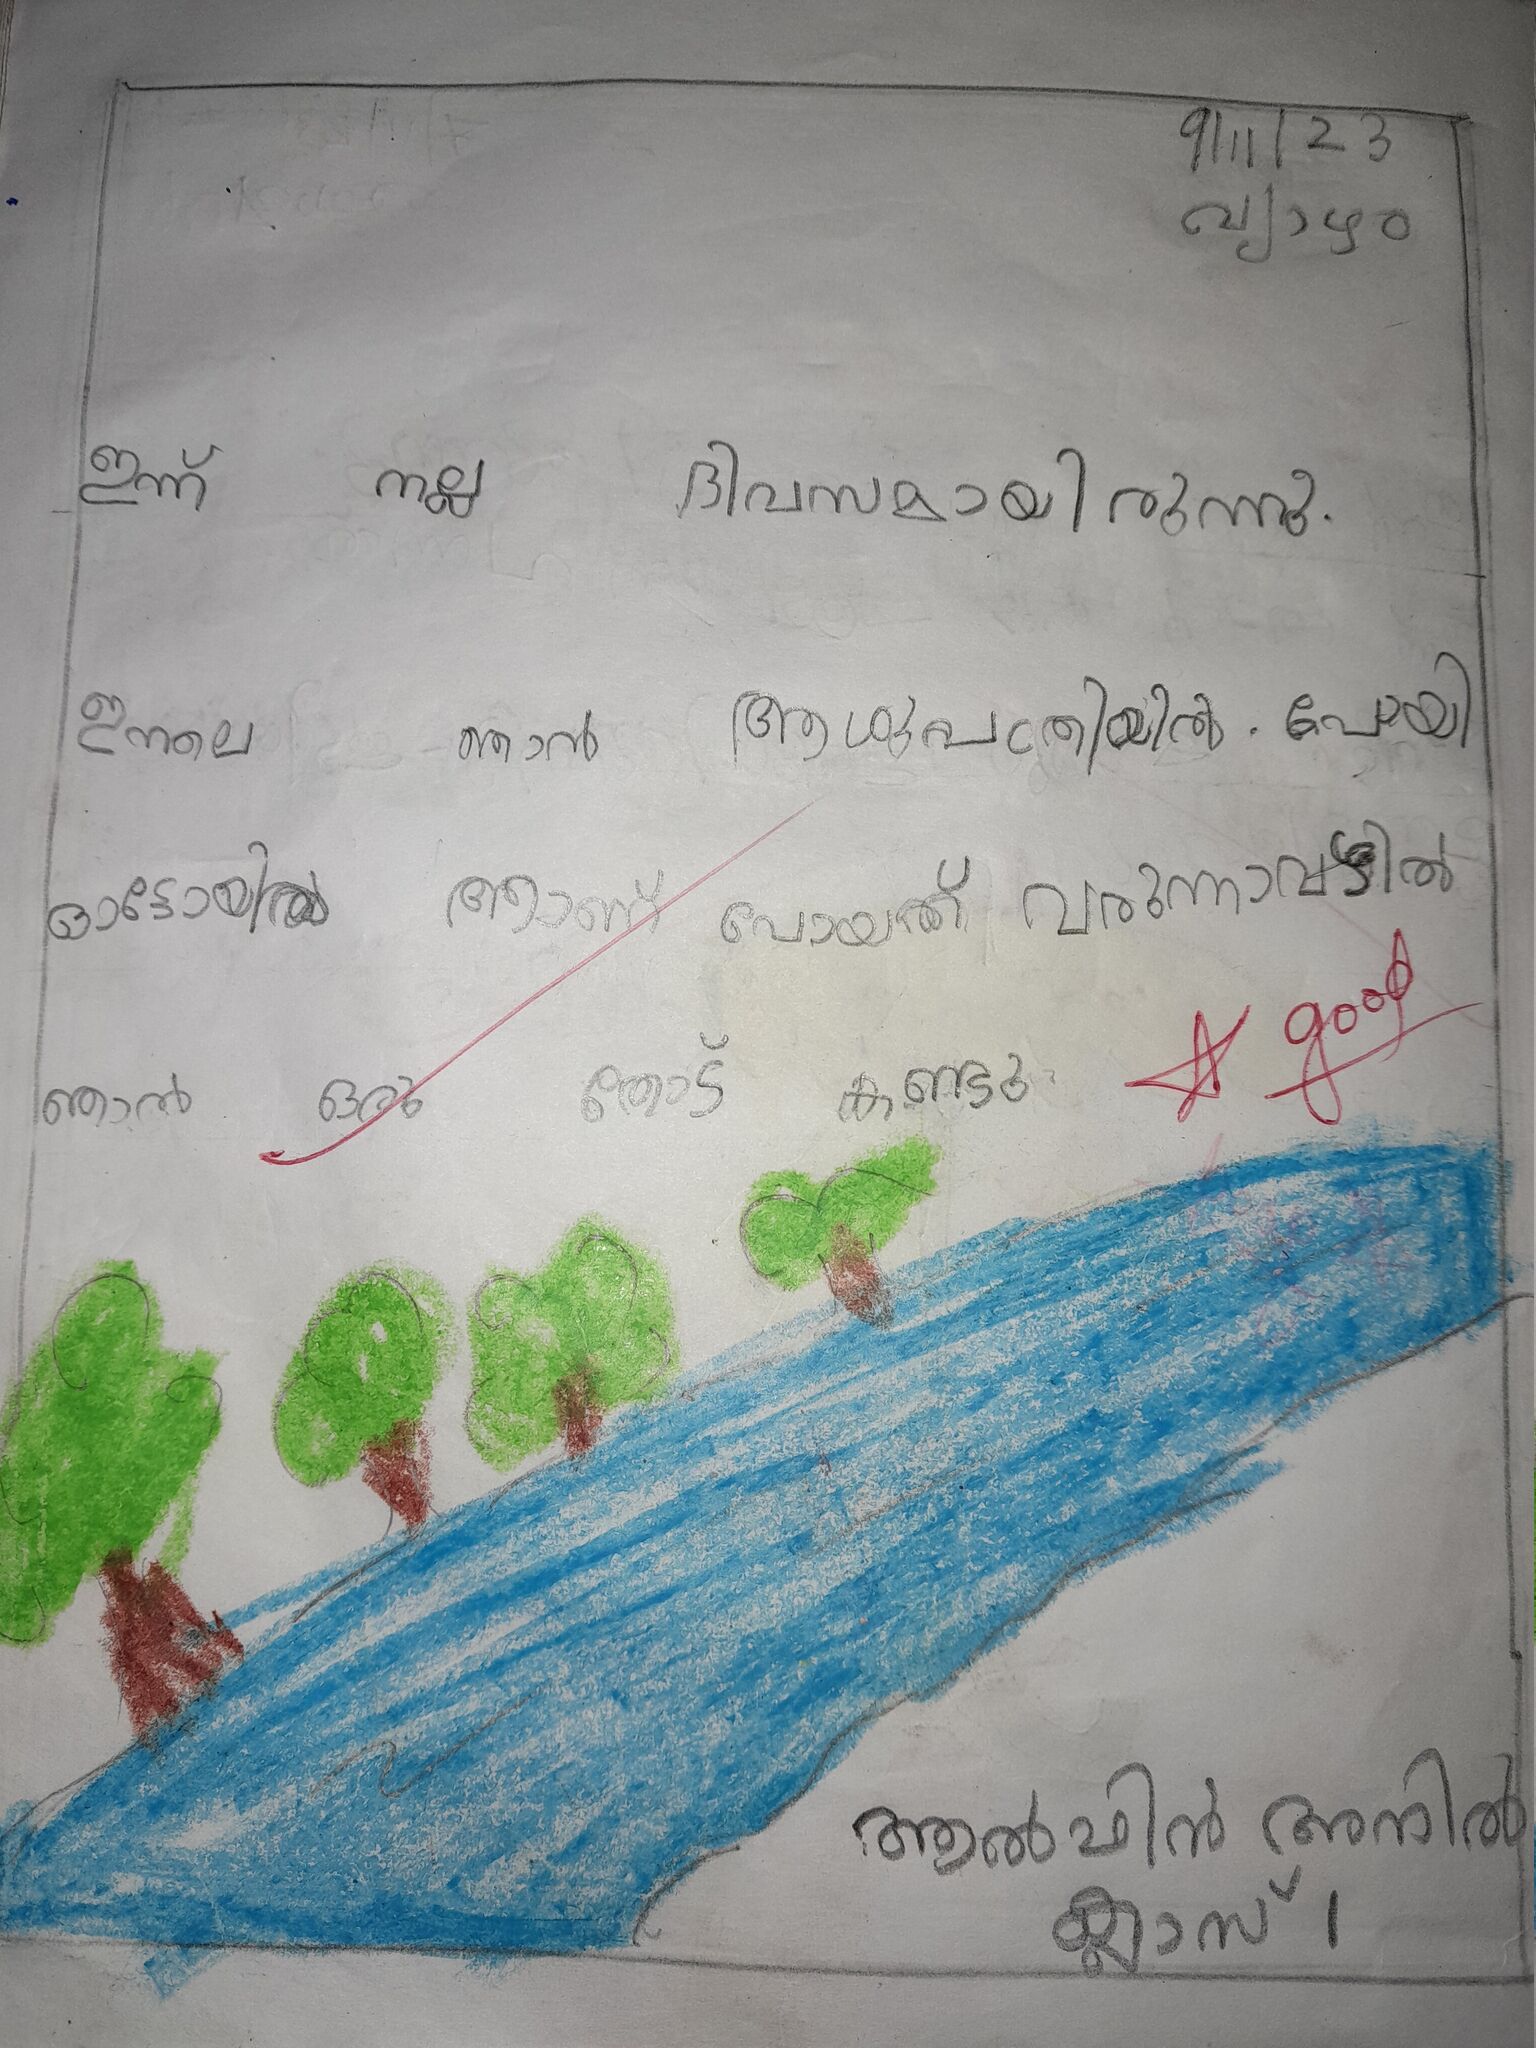 9/11/23
വ്യാഴം
ഇന്ന് നല്ല ദിവസമായിരുന്നു.
ഇന്നലെ ഞാൻ ആശുപത്രിയിൽ. പോയി
ഓട്ടോയിൽ ആണ് പോയത് വരുന്നാവഴിൽ
ഞാൻ ഒരു തോട് കണ്ടു
good
ആൽഫിൻ അനിൽ
ക്ലാസ് 1